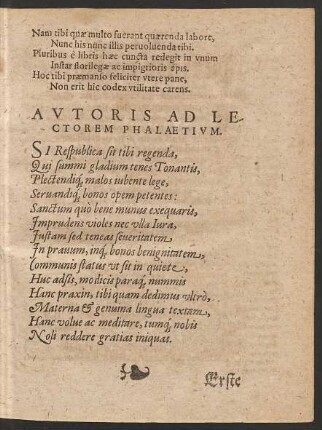 Nam tibi quæ multo fuerant quærenda labore,
Nunc his nunc illis peruoluenda tibi.
Pluribus è libris hæc cuncta redegit in vnum
Instar florilegæ ac impigrioris apis.
Hoc tibi præmanio feliciter vtere pane,
Non erit hic codex vtilitate carens.
AVTORIS AD LE-
CTOREM PHALAETIVM.
SI Respublica sit tibi regenda,
Qui summi gladium tenes Tonantis,
Plectendiq́; malos iubente lege,
Seruandiq́; bonos opem petentes:
Sanctum quò bene munus exequaris,
Imprudens violes nec vlla Iura,
Iustam sed teneas seueritatem
In prauum, inq́; bonos benignitatem,
Communis status vt sit in quiete,
Huc adsis, modicis paraq́; nummis
Hanc praxin, tibi quam dedimus vltrò,
Materna & genuina lingua textam,
Hanc volue ac meditare, tumq́; nobis
Noli reddere gratias iniquas.
Erste